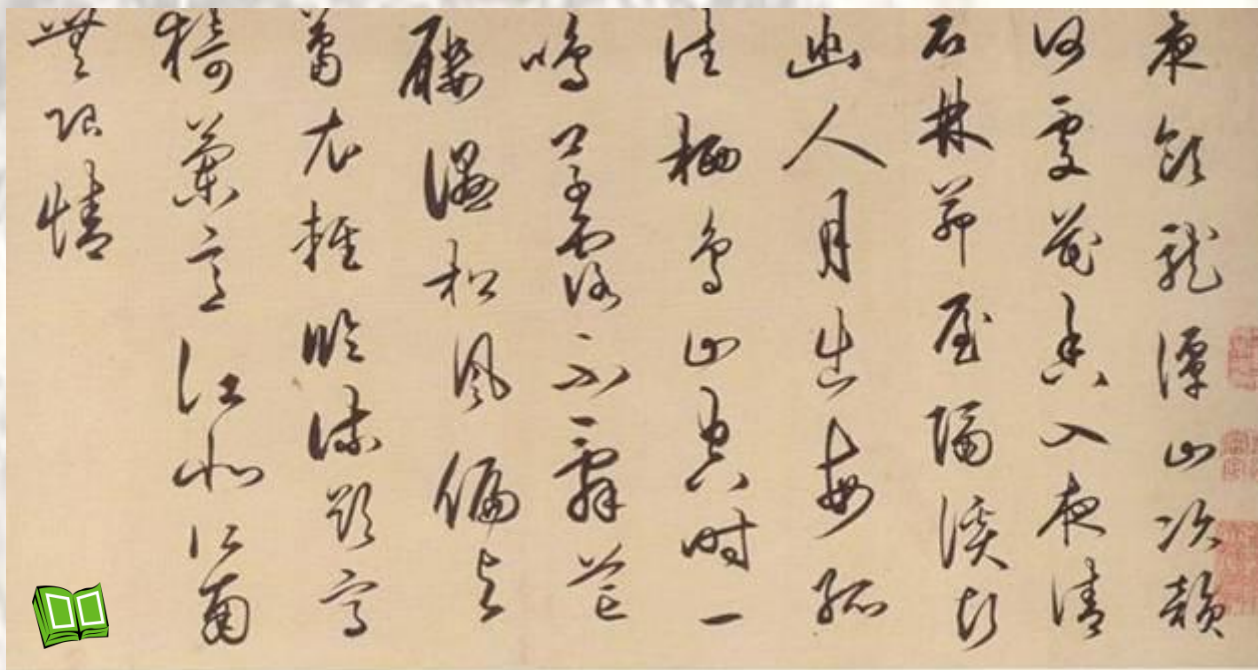 夜飲龍潭山次韻
何處花香入夜清
石林茅屋隔溪聲
幽人月出每孤
往栖鳥山空時一
鳴草露不辭芒
屨濕松風偏與
葛衣輕臨流欲寫
猗蘭意江北江南
無限情